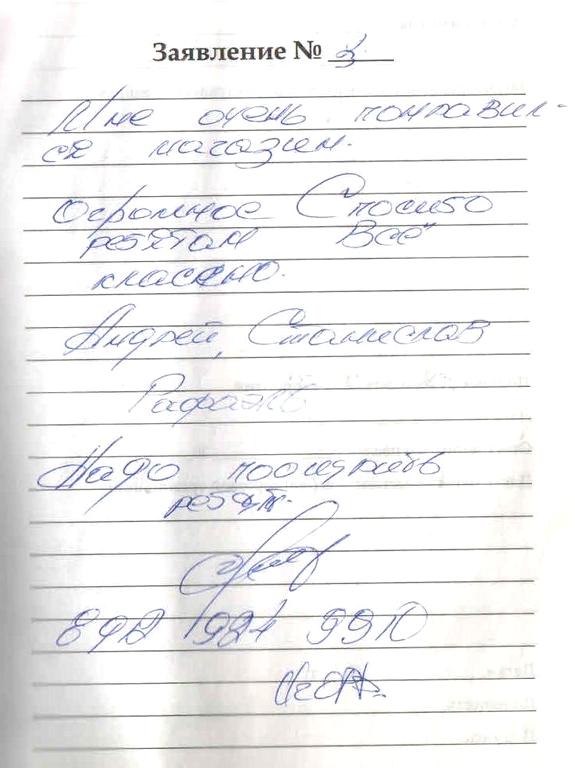 Заявление № 3
Мне очень понравил-
ся магазин.
Огромное Спосибо
ребятам Всё
классно.
Андрей, Станислав
Рафаэль
Надо поощрить
ребят.
924 9910